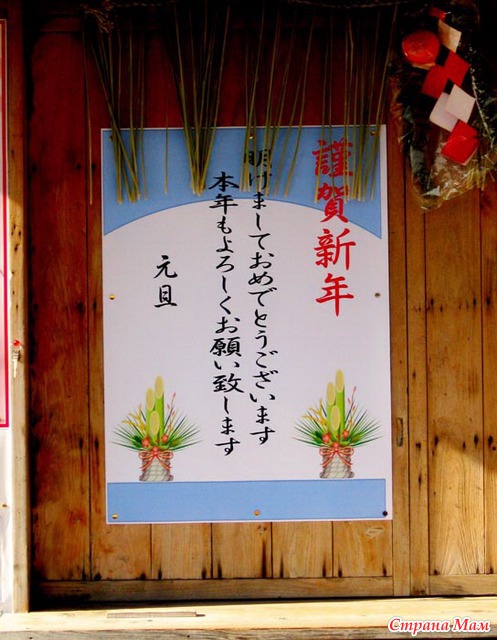 謹賀新年
明けましておめでとうございます
本年もよろしくお願い致します
元旦
Страна Мам